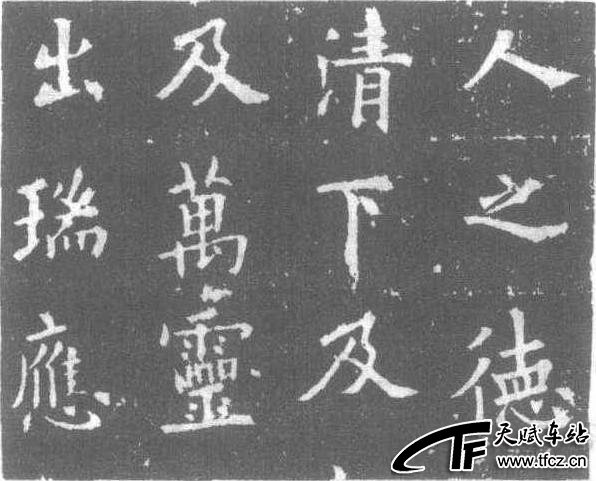 人之德
清下及
及萬靈
出瑞應
TF
天赋车站
www.tfcz.cn